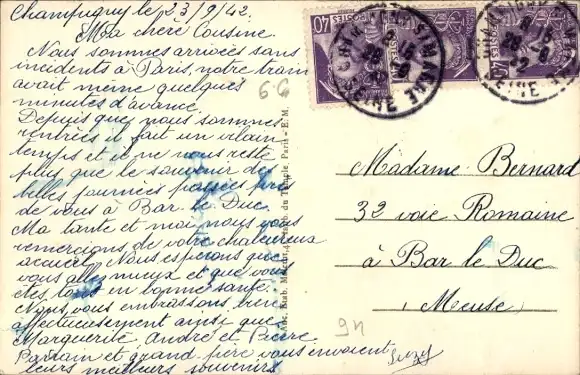 Champigny le, 23/9/42.
Ma chère Cousine.
Nous sommes arrivées sans
incidents à Paris, notre train
avait même quelques
minutes d'avance.
Depuis que nous sommes
rentrées il fait un vilain
temps et il ne nous reste
plus que le souvenir des
belles journées passées près
de vous à Bar le Duc.
Ma tante et moi, nous vous
remercions de votre chaleureux
accueil. Nous espérons que
vous allez mieux et que vous
êtes tous en bonne santé.
Nous vous embrassons bien
affectueusement ainsi que
Marguerite, André et Pierre.
Parrain et grand-père vous envoient
leurs meilleurs souvenirs
Suzy
66
POSTES
40
Madame Bernard
32 voie Romaine
à Bar le Duc
(Meuse)
94